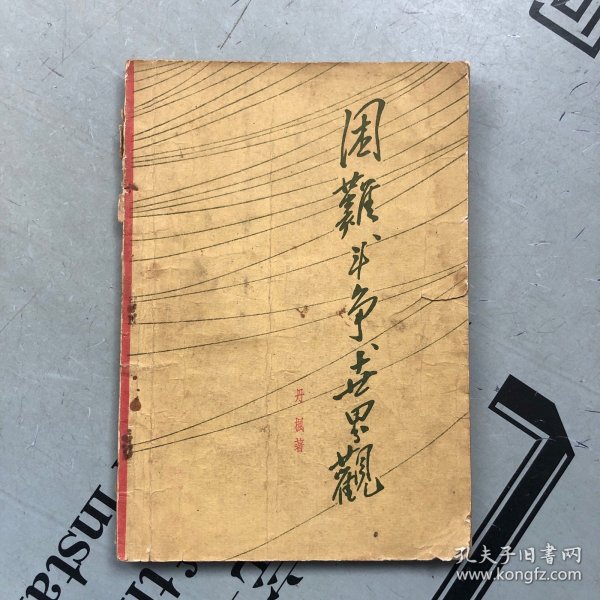 困難、斗争、世界觀
丹楓著
Insta
Insta
孔夫子旧書网
www.kongfz.com